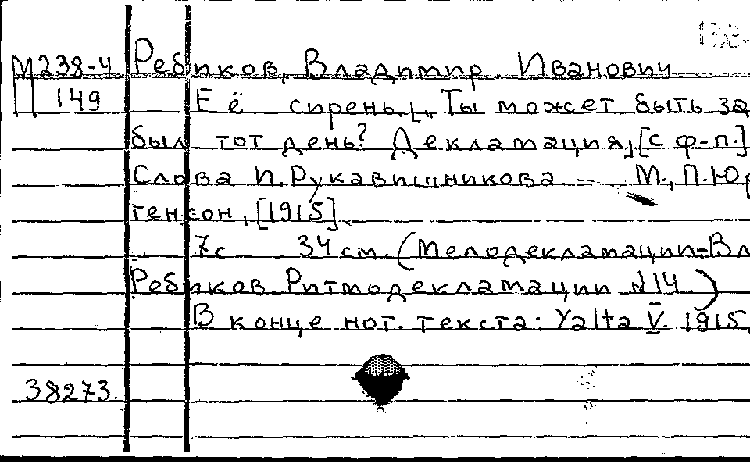 М238-4 Ребиков, Владимир Иванович
149 Её сирень. „Ты может быть за
был тот день? Декламация, [с ф-п.]
Слова И. Рукавишникова — М., П. Юр
генсон, [1915].
7с 34 см. (Мелодекламации-Вл
Ребиков. Ритмодекламации №14)
В конце нот. текста: Yalta V. 1915.
38273.